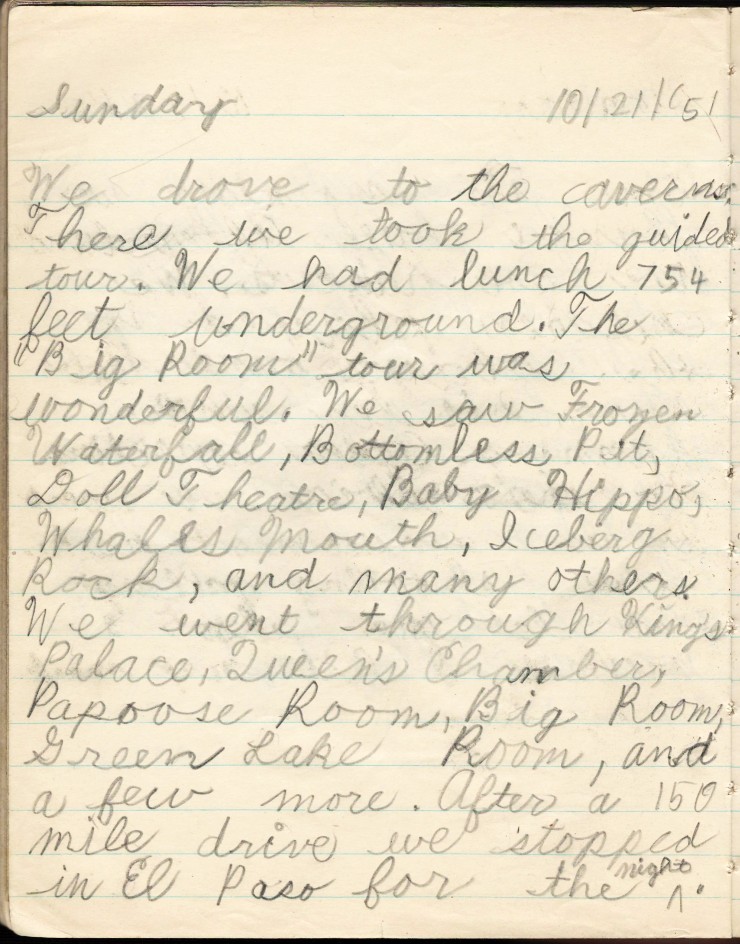 Sunday 10/21/51
We drove to the caverns.
There we took the guided
tour. We had lunch 754
feet underground. The
"Big Room" tour was
wonderful. We saw Frozen
Waterfall, Bottomless Pit,
Doll Theatre, Baby Hippo,
Whales Mouth, Iceberg
Rock, and many others.
We went through Kings
Palace, Queen's Chamber,
Papoose Room, Big Room,
Green Lake Room, and
a few more. After a 150
mile drive we stopped
in El Paso for the night.